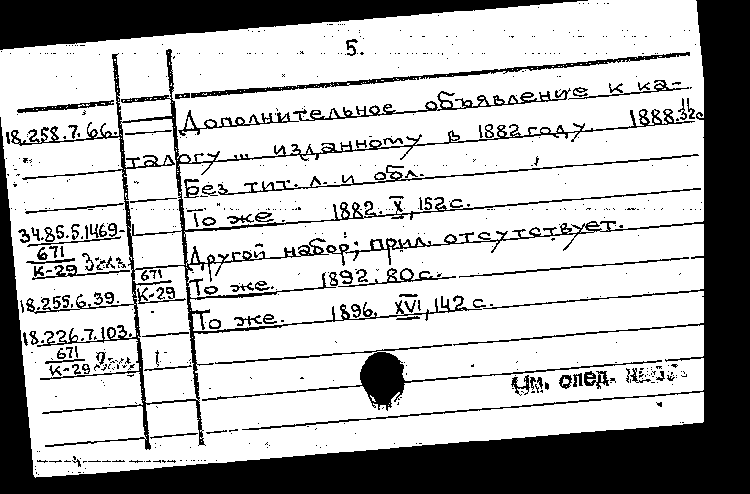 5.
18.258.7.66. Дополнительное объявление к ка-
талогу ... изданному в 1882 году. 1888. II, 32с
Без тит. л. и обл.
34.85.5.1469- То же. 1882. X, 152 с.
671
К-29 2экз. Другой набор; прил. отсутствует.
18.255.6.39. 671
К-29 То же. 1892. 80 с.
18.226.7.103. То же. 1896. XVI, 142 с.
671
К-29
См. след.